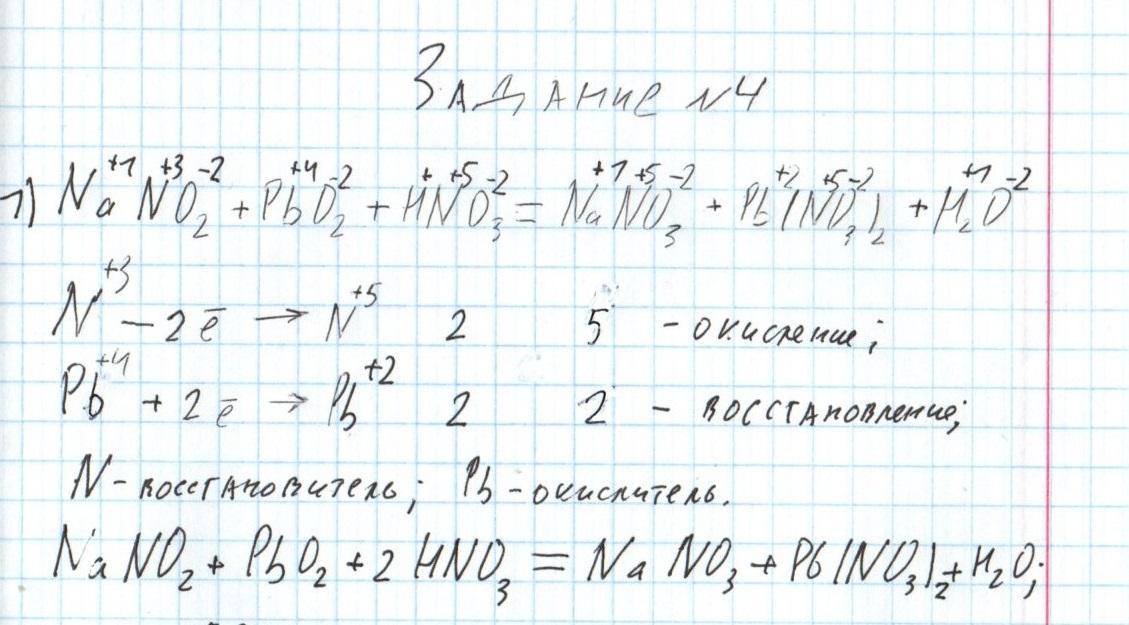 Задание N4
1) Na⁺¹N⁺³O₂⁻² + Pb⁺⁴O₂⁻² + H⁺N⁺⁵O₃⁻² = Na⁺¹N⁺⁵O₃⁻² + Pb⁺²(N⁺⁵O₃⁻²)₂ + H₂⁺¹O⁻²
N⁺³ – 2ē → N⁺⁵ 2 5 - окисление;
Pb⁺⁴ + 2ē → Pb⁺² 2 2 - восстановление;
N - восстановитель; Pb - окислитель.
NaNO₂ + PbO₂ + 2HNO₃ = NaNO₃ + Pb(NO₃)₂ + H₂O;